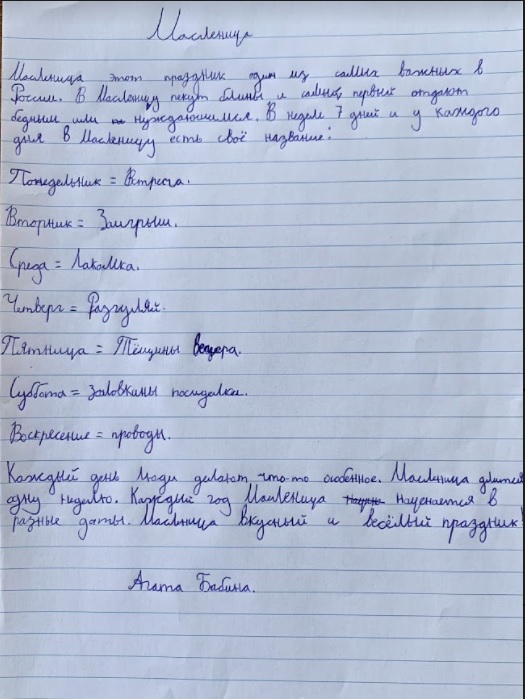 Масленица
Масленица этот праздник один из самых важных в
России. В Масленицу пекут блины и самый первый отдают
бедным или нуждающимся. В неделе 7 дней и у каждого
дня в Масленицу есть своё название:
Понедельник = Встреча.
Вторник = Заигрыши.
Среда = Лакомка.
Четверг = Разгуляй.
Пятница = Тёщины вечера.
Суббота = Золовкины посиделки.
Воскресение = проводы.
Каждый день люди делают что-то особенное. Масленица длится
одну неделю. Каждый год Масленица начинается в
разные даты. Масленица вкусный и весёлый праздник!
Агата Бабина.